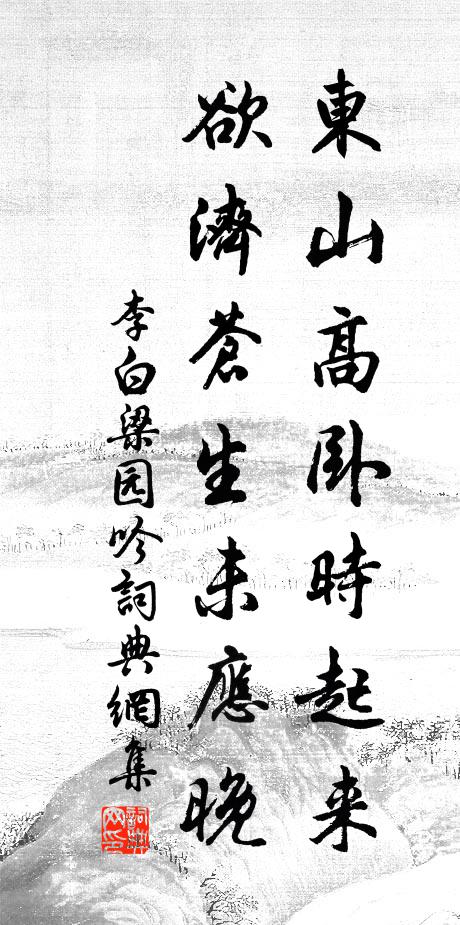 東山高卧時起来
欲濟蒼生未應晚
李白梁园吟詞典網集